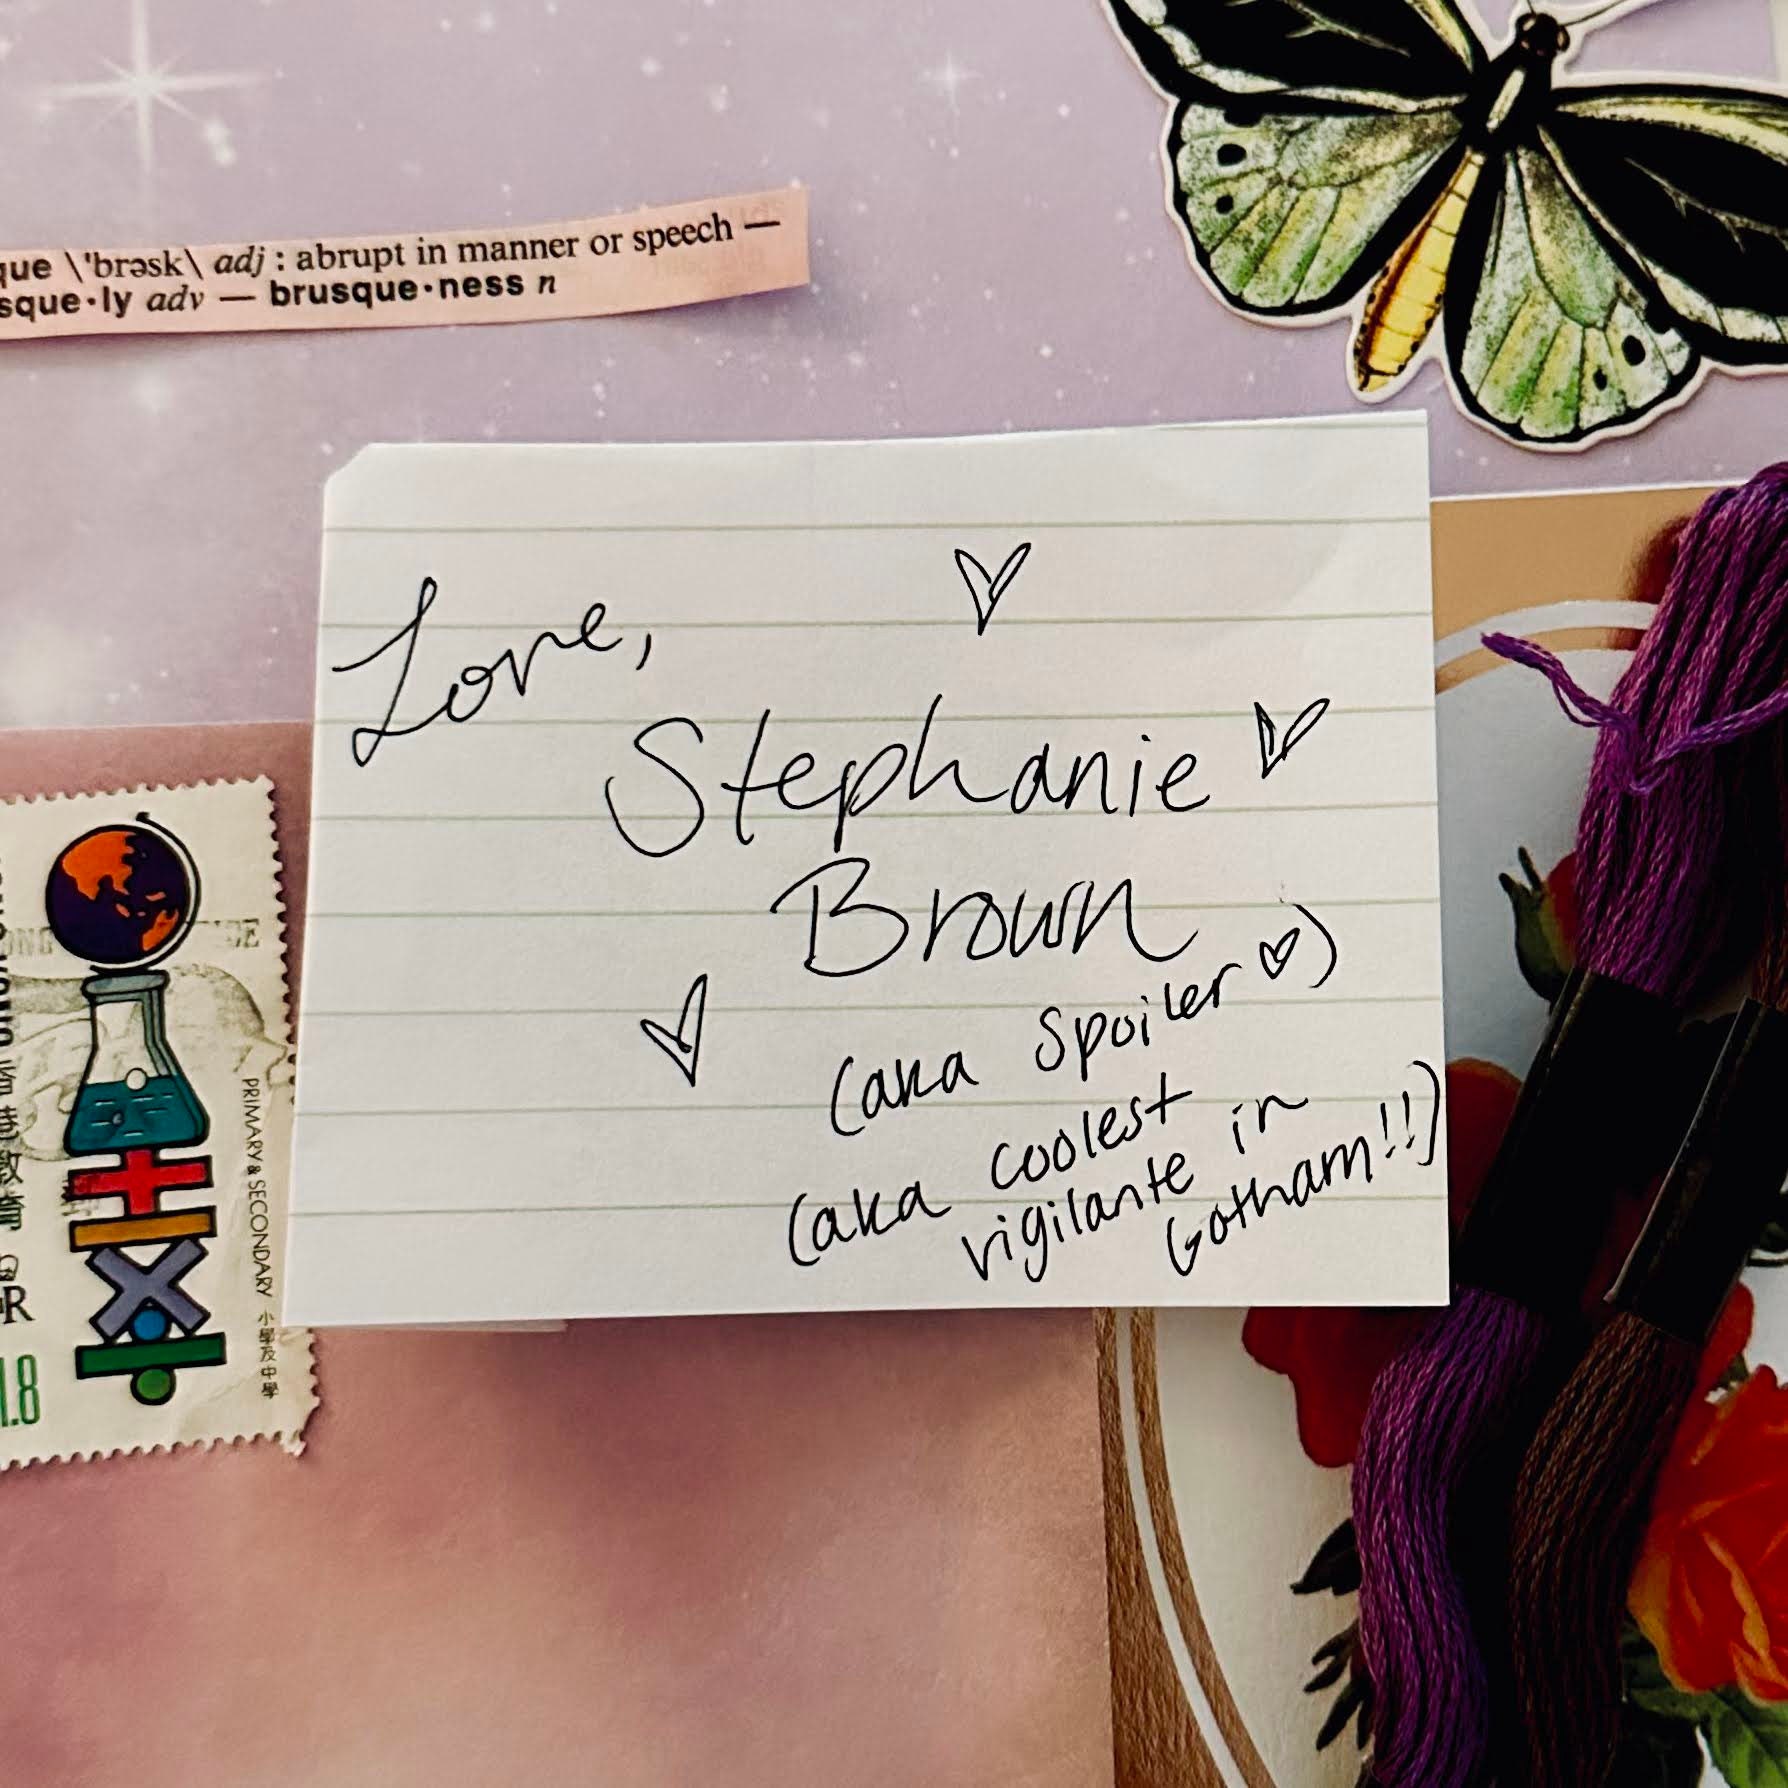 que \'brəsk\ adj : abrupt in manner or speech —
sque·ly adv — brusque·ness n
Love,
Stephanie
Brown
(aka Spoiler ♡)
(aka coolest
vigilante in
Gotham!!)
PRIMARY & SECONDARY 小學及中學
香港教育
1.8